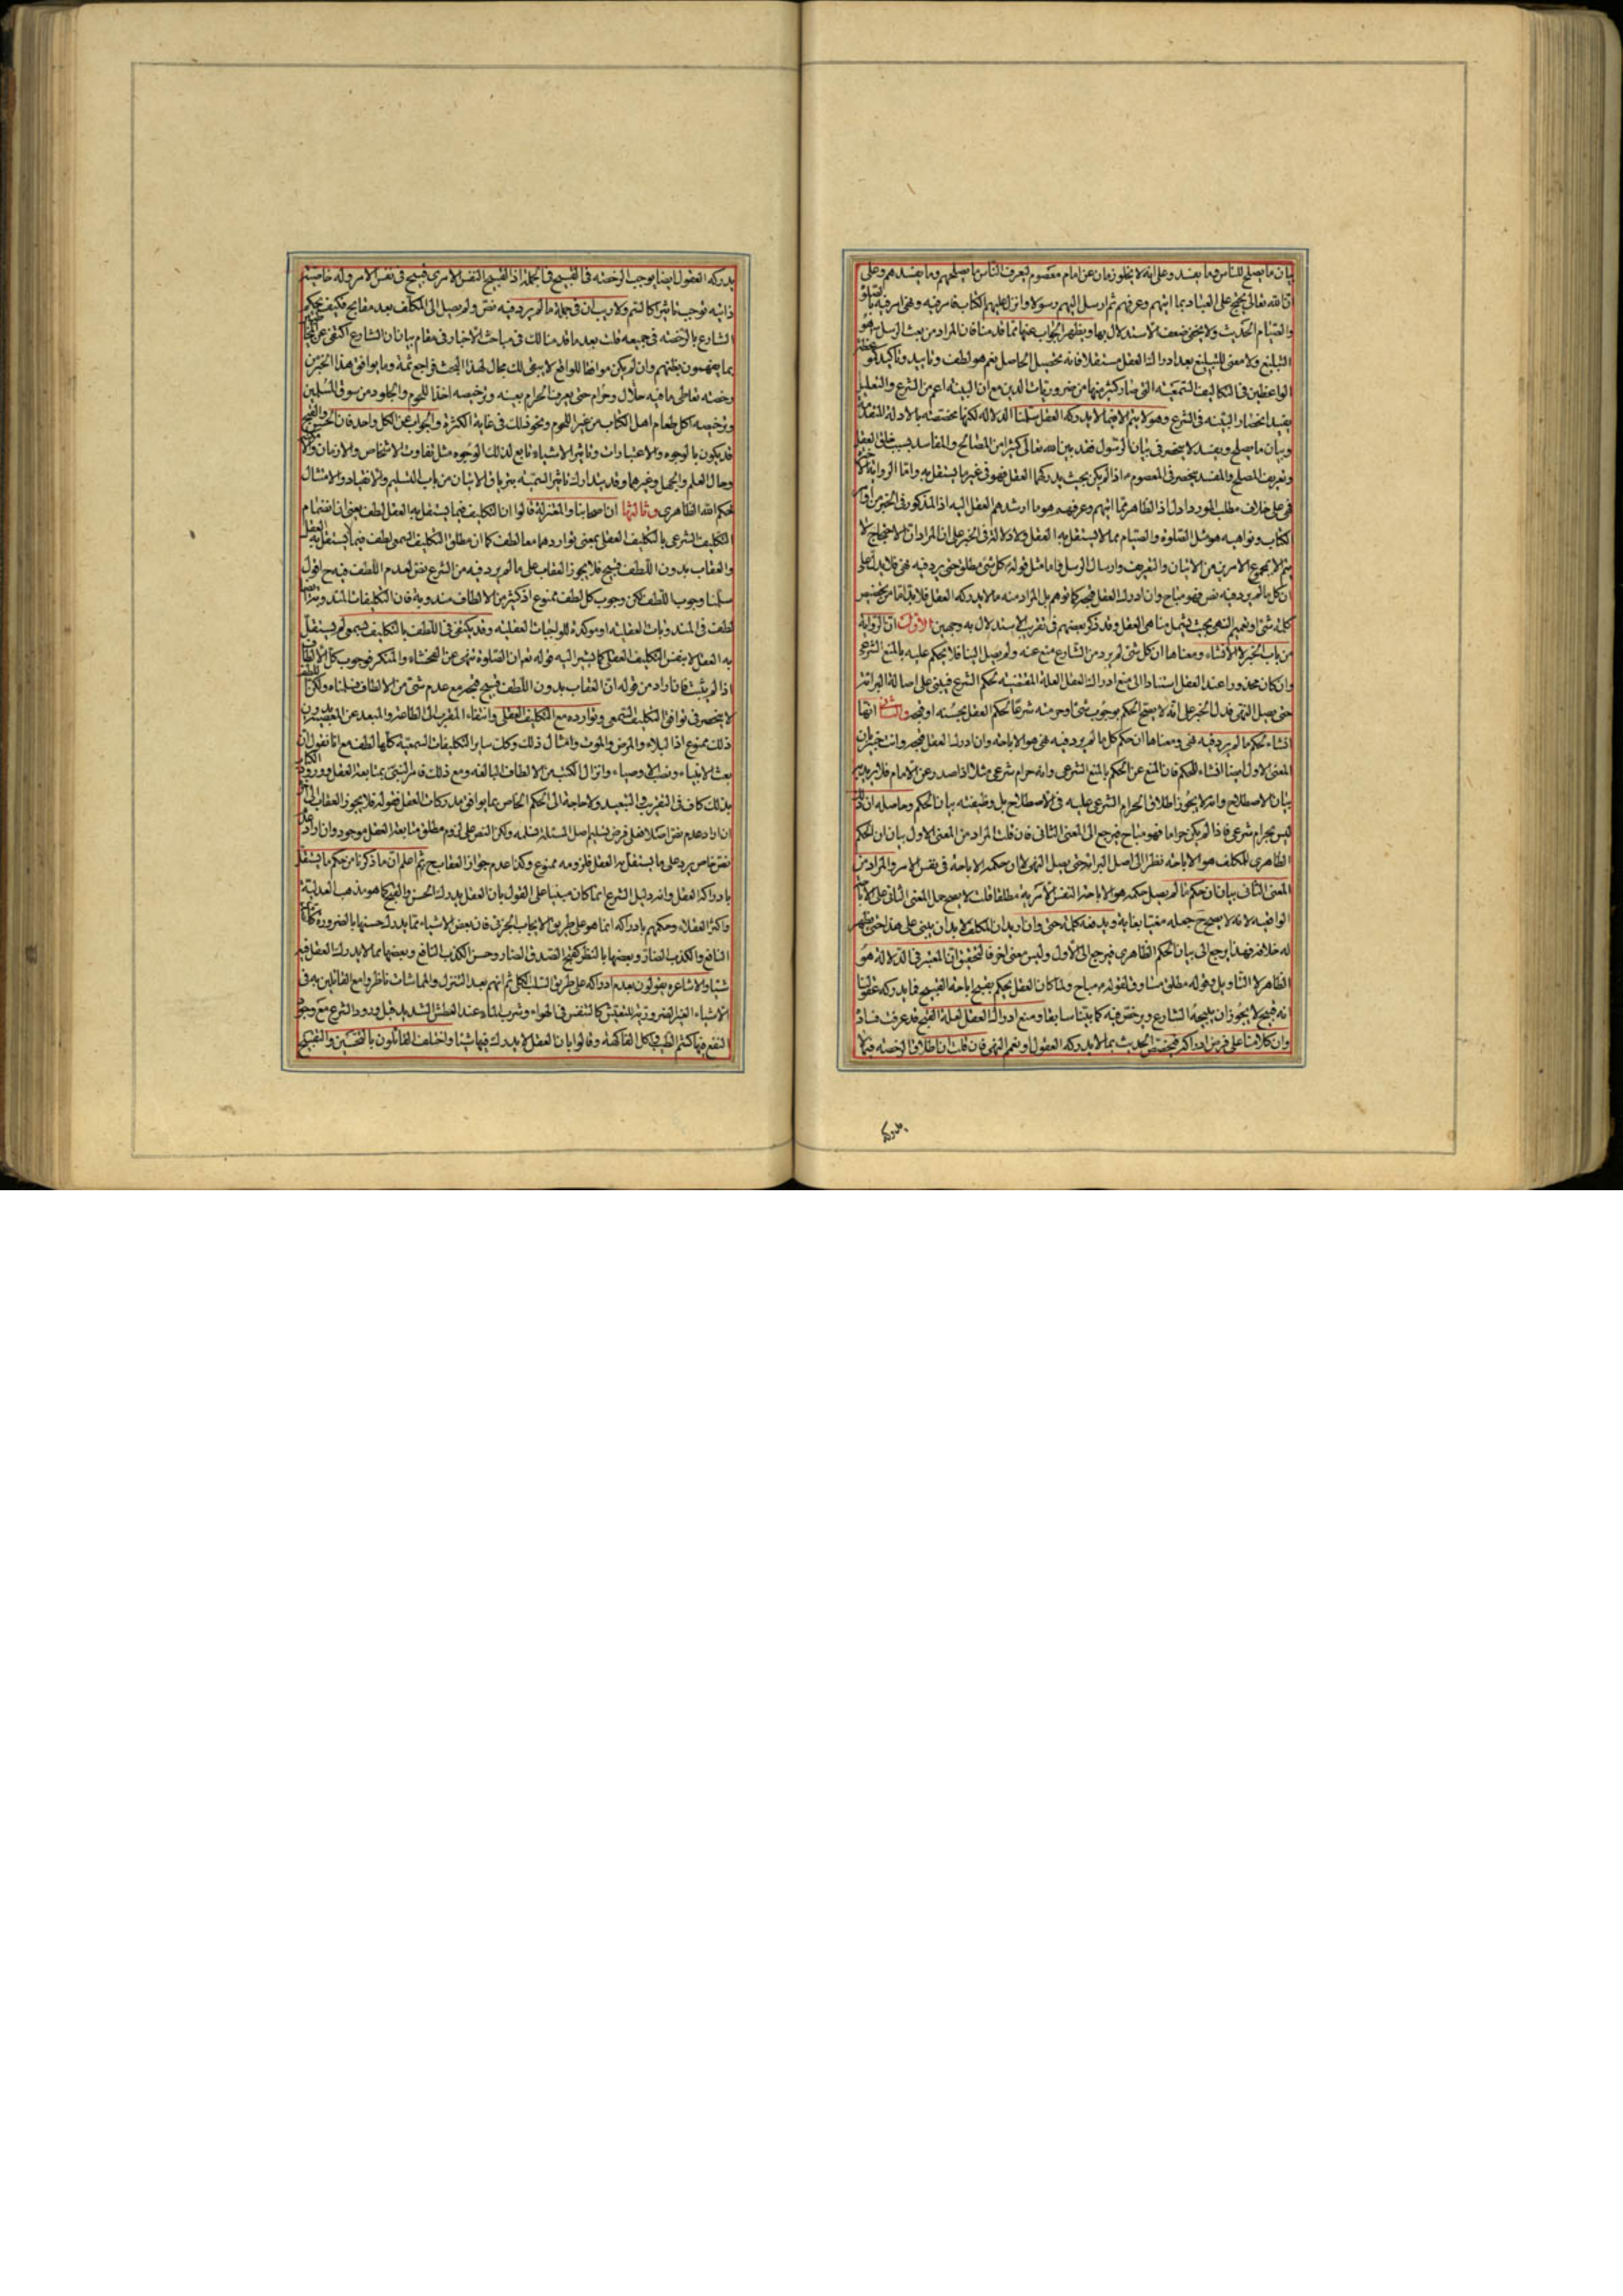 بيان ما يصلح للناس وما يفسد وعلى انه لا يخلو زمان عن امام معصوم ليعرف الناس ما يصلحهم وما يفسدهم وعلى
ان الله تعالى يحتج على العباد بما اتيهم وعرفهم ثم ارسل اليهم رسولا وانزل عليهم الكتاب فامر فيه ونهى امر فيه بالصلوة
والصيام الحديث ولا يخفى ضعف الاستدلال بها ويظهر الجواب عنها مما قدمنا فان المراد من بعث الرسل هو
التبليغ ولا معنى للتبليغ بعد ادراك العقل مستقلا فانه تحصيل الحاصل نعم هو لطف وتاييد وتاكيد كوعظ
الواعظين في التكاليف السمعية التي صار كثير منها من ضروريات الدين مع ان البينة اعم من الشرع والتعليل
يفيد انحصار البينة في الشرع وهو لا يتم الا فيما لا يدركه العقل سلمنا الدلالة لكنها مختصة بالادلة المتقدمة
وبيان ما يصلح ويفسد لا ينحصر في بيان الرسول فقد بين الله تعالى كثيرا من المصالح والمفاسد بسبب خلق العقل
وتعريف المصلح والمفسد ينحصر في المعصوم اذا لم يكن بحيث يدركهما العقل فهو في غير ما يستقل به واما الرواية الاخيرة
فهي على خلاف مطلب المورد ادل اذ الظاهر مما اتيهم وعرفهم هو ما ارشدهم العقل اليه اذ المذكور في الخبر من
كتاب ونواهيه هو مثل الصلوة والصيام مما لا يستقل به العقل ولا دلالة في الخبر على ان المراد ان الاحتجاج لا
يتم الا بمجموع الامرين من الاتيان والتعريف وارسال الرسل واما مثل قوله كل شئ مطلق حتى يرد فيه نهى فلا يدل على
ان كل ما لم يرد فيه نص فهو مباح وان ادرك العقل قبحه كما توهم بل المراد منه ما لا يدركه العقل فلا بد اما من تخصيص
كلمة شئ او تعميم النهى بحيث يشمل مناهى العقل وقد ذكر بعضهم في تقريب الاستدلال به وجهين الاول ان الرواية
من باب الخبر لا الانشاء ومعناها ان كل شئ لم يرد من الشارع منع عنه ولم يصل الينا فلا يحكم عليه بالمنع الشرعى
وان كان محذورا عند العقل استنادا الى منع ادراك العقل العلة المقتضية لحكم الشرع فيبنى على اصالة البرائة
حتى يصل النهى فدل الخبر على انه لا يصح الحكم بوجوب شئ او حرمته شرعا لحكم العقل بحسنه او قبحه والثانى انها
انشاء لحكم ما لم يرد فيه نهى ومعناها ان حكم كل ما لم يرد فيه نهى هو الاباحة وان ادرك العقل قبحه وانت خبير بان
المعنى الاول ايضا انشاء للحكم فان المنع عن الحكم بالمنع الشرعى وانه حرام شرعى مثلا اذا صدر عن الامام فلا يريد به
بيان الاصطلاح وانه لا يجوز اطلاق الحرام الشرعى عليه في الاصطلاح بل وظيفته بيان الحكم وحاصله ان ذلك
ليس بحرام شرعى فاذا لم يكن حراما فهو مباح فيرجع الى المعنى الثانى فان قلت المراد من المعنى الاول بيان ان الحكم
الظاهرى للمكلف هو الاباحة نظرا الى اصل البرائة حتى يصل النهى لا ان حكمه الاباحة في نفس الامر والمراد من
المعنى الثانى بيان ان حكم ما لم يصل حكمه هو الاباحة النفس الامرية مطلقا قلت لا يصح حمل المعنى الثانى على الاباحة
الواقعية لانه لا يصح ح جعله مغيا بغاية ويدفعه كلمة حتى وان اريد ان المكلف لا بد ان يبنى على هذا حتى يظهر
له خلافه فهذا يرجع الى بيان الحكم الظاهرى فيرجع الى الاول وليس معنى اخر فالتحقيق ان المعتبر في الدلالة هو
الظاهر لا التاويل وقوله مطلق مساوق لقوله مباح ولما كان العقل يحكم بقبح اباحة القبيح فما يدركه عقولنا
انه قبيح لا يجوز ان يبيحه الشارع ويرخص فيه كما بينا سابقا ومنع ادراك العقل لعلة القبح قد عرفت فساده
وان كلامنا على فرض ادراكه فيختص الحديث بما لا يدركه العقول او نعمم النهى فان قلت ان اطلاق الرخصة فيما لا
يدركه
يدركه العقول ايضا يوجب الرخصة في القبيح في الجملة اذ القبيح النفس الامرى قبيح في نفس الامر وله خاصية
ذاتية توجب تاثيرا كالسم ولا ريب ان في جملة ما لم يرد فيه نص ولم يصل الى المكلف بعد مفاسح فكيف يحكم
الشارع بالرخصة في جميعه قلت بعد ما قدمنا لك في مباحث الاخبار في مقام بيان ان الشارع اكتفى عن
بما يفهمون بظنهم وان لم يكن موافقا للواقع لا يبقى لك مجال لهذا البحث فراجع ثمة وما يوافق هذا الخبر من
رخصة تعاطى ما فيه حلال وحرام حتى يعرف الحرام بعينه وترخيصه اخذ اللحوم والجلود من سوق المسلمين
وترخيصه اكل طعام اهل الكتاب من غير اللحوم ونحو ذلك في غاية الكثرة والجواب عن الكل واحد فان الحسن والقبح
قد يكون بالوجوه والاعتبارات وتاثير الاشياء تابع لذلك الوجوه مثل تفاوت الاشخاص والازمان
وحال العلم والجهل وغيرهما وقد يتدارك تاثير السمية بترياق الاتيان من باب التسليم والانقياد والامتثال
لحكم الله الظاهرى وثالثها ان اصحابنا والمعتزلة قالوا ان التكليف فيما يستقل به العقل لطف يعنى ان انضمام
التكليف الشرعى بالتكليف العقلى بمعنى تواردهما معا لطف كما ان مطلق التكليف السمعى لطف فيما لا يستقل به العقل
والعقاب بدون اللطف قبيح فلا يجوز العقاب على ما لم يرد فيه من الشرع نص لعدم اللطف فيه ح اقول
سلمنا وجوب اللطف لكن وجوب كل لطف ممنوع اذ كثير من الالطاف مندوبة فان التكليفات المندوبة
لطف في المندوبات العقلية او موكدة للواجبات العقلية وقد يكتفى في اللطف بالتكليف السمعى لم يستقل
به العقل لا بنفس التكليف العقلى كما يشير اليه قوله تعالى ان الصلوة تنهى عن الفحشاء والمنكر فوجوب كل الالطاف
اذا لم يثبت فان اراد من قوله ان العقاب بدون اللطف قبيح قبحه مع عدم شئ من الالطاف فسلمناه ولكن
لا ينحصر في توافق التكليف السمعى وتوارده مع التكليف العقلى وانتفاء المقرب الى الطاعة والمبعد عن المعصية بدون
ذلك ممنوع اذ البلاء والمرض والموت وامثال ذلك وكذلك ساير التكليفات السمعية كلها لطف مع انا نقول ان
بعث الانبياء ونصب الاوصياء وانزال الكتب من الالطاف البالغة ومع ذلك فامر النبى بمتابعة العقل وورود الكتاب
بذلك كاف في التقريب والتبعيد ولا حاجة الى الحكم الخاص بما يوافق مدركات العقل فقوله فلا يجوز العقاب الى اخره
ان اراد عدم نص اصلا فعلى فرض تسليم اصل المسئلة فنسلمه ولكن النص على لزوم مطلق متابعة العقل موجود وان اراد عدم
نص خاص يرد على ما يستقل به العقل فلزومه ممنوع وكذا عدم جواز العقاب ح ثم اعلم ان ما ذكرنا من حكم ما يستقل
بادراكه العقل وانه دليل الشرع انما كان مبنيا على القول بان العقل يدرك الحسن والقبح كما هو مذهب العدلية
واكثر العقلاء وحكمهم بادراكه انما هو على طريق الايجاب الجزئى فان بعض الاشياء مما يدرك حسنها بالضرورة كالصدق
النافع والكذب الضار وبعضها بالنظر كقبح الصدق الضار وحسن الكذب النافع وبعضها مما لا يدرك العقل فيه
شيئا والاشاعرة يقولون بعدم ادراكه على طريق السلب الكلى ثم انهم بعد التنزل والمماشات ناظروا مع القائلين به في
الاشياء الغير الضرورية للتعيش كالتنفس في الهواء وشرب الماء عند العطش الشديد قبل ورود الشرع مع وجود
النفع فيها كشم الطيب واكل الفاكهة وقالوا بان العقل لا يدرك فيها شيئا واختلف القائلون بالتحسين والتقبيح